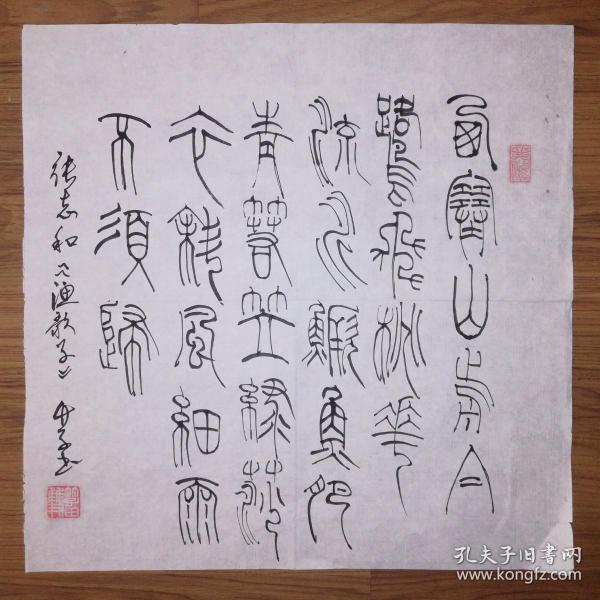 西塞山前白
鷺飛桃花
流水鱖魚肥
青箬笠綠蓑
衣斜風細雨
不須歸
张志和《渔歌子》
孔夫子旧书网
www.kongfz.com